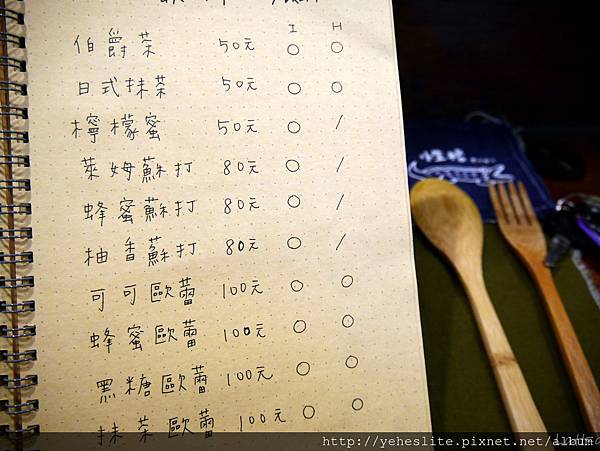 I H
伯爵茶 50元 ○ ○
日式抹茶 50元 ○ ○
檸檬蜜 50元 ○ /
萊姆蘇打 80元 ○ /
蜂蜜蘇打 80元 ○ /
柚香蘇打 80元 ○ /
可可歐蕾 100元 ○ ○
蜂蜜歐蕾 100元 ○ ○
黑糖歐蕾 100元 ○ ○
抹茶歐蕾 100元 ○ ○
http://yeheslite.pixnet.net/album